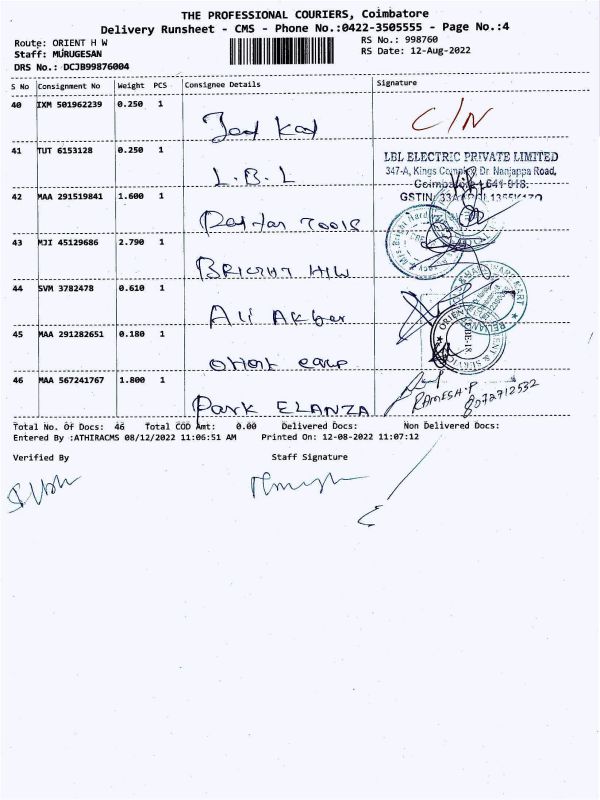 THE PROFESSIONAL COURIERS, Coimbatore
Delivery Runsheet - CMS - Phone No.:0422-3505555 - Page No.:4
Route: ORIENT H W
RS No.: 998760
Staff: MURUGESAN
RS Date: 12-Aug-2022
DRS No.: DCJB99876004
S No Consignment No Weight PCS Consignee Details Signature
40 IXM 501962239 0.250 1
C/N
41 TUT 6153128 0.250 1
L.B.L
LBL ELECTRIC PRIVATE LIMITED
347-A, Kings Complex, Dr. Nanjappa Road,
Coimbatore - 641 018.
GSTIN:
42 MAA 291519841 1.600 1
Tools
43 MJI 45129686 2.790 1
BRIGHT H/W
44 SVM 3782478 0.610 1
Ali Akber
45 MAA 291282651 0.180 1
46 MAA 567241767 1.800 1
Park ELANZA
RAMESH.P
8072712532
Total No. Of Docs: 46 Total COD Amt: 0.00 Delivered Docs: Non Delivered Docs:
Entered By :ATHIRACMS 08/12/2022 11:06:51 AM Printed On: 12-08-2022 11:07:12
Verified By Staff Signature